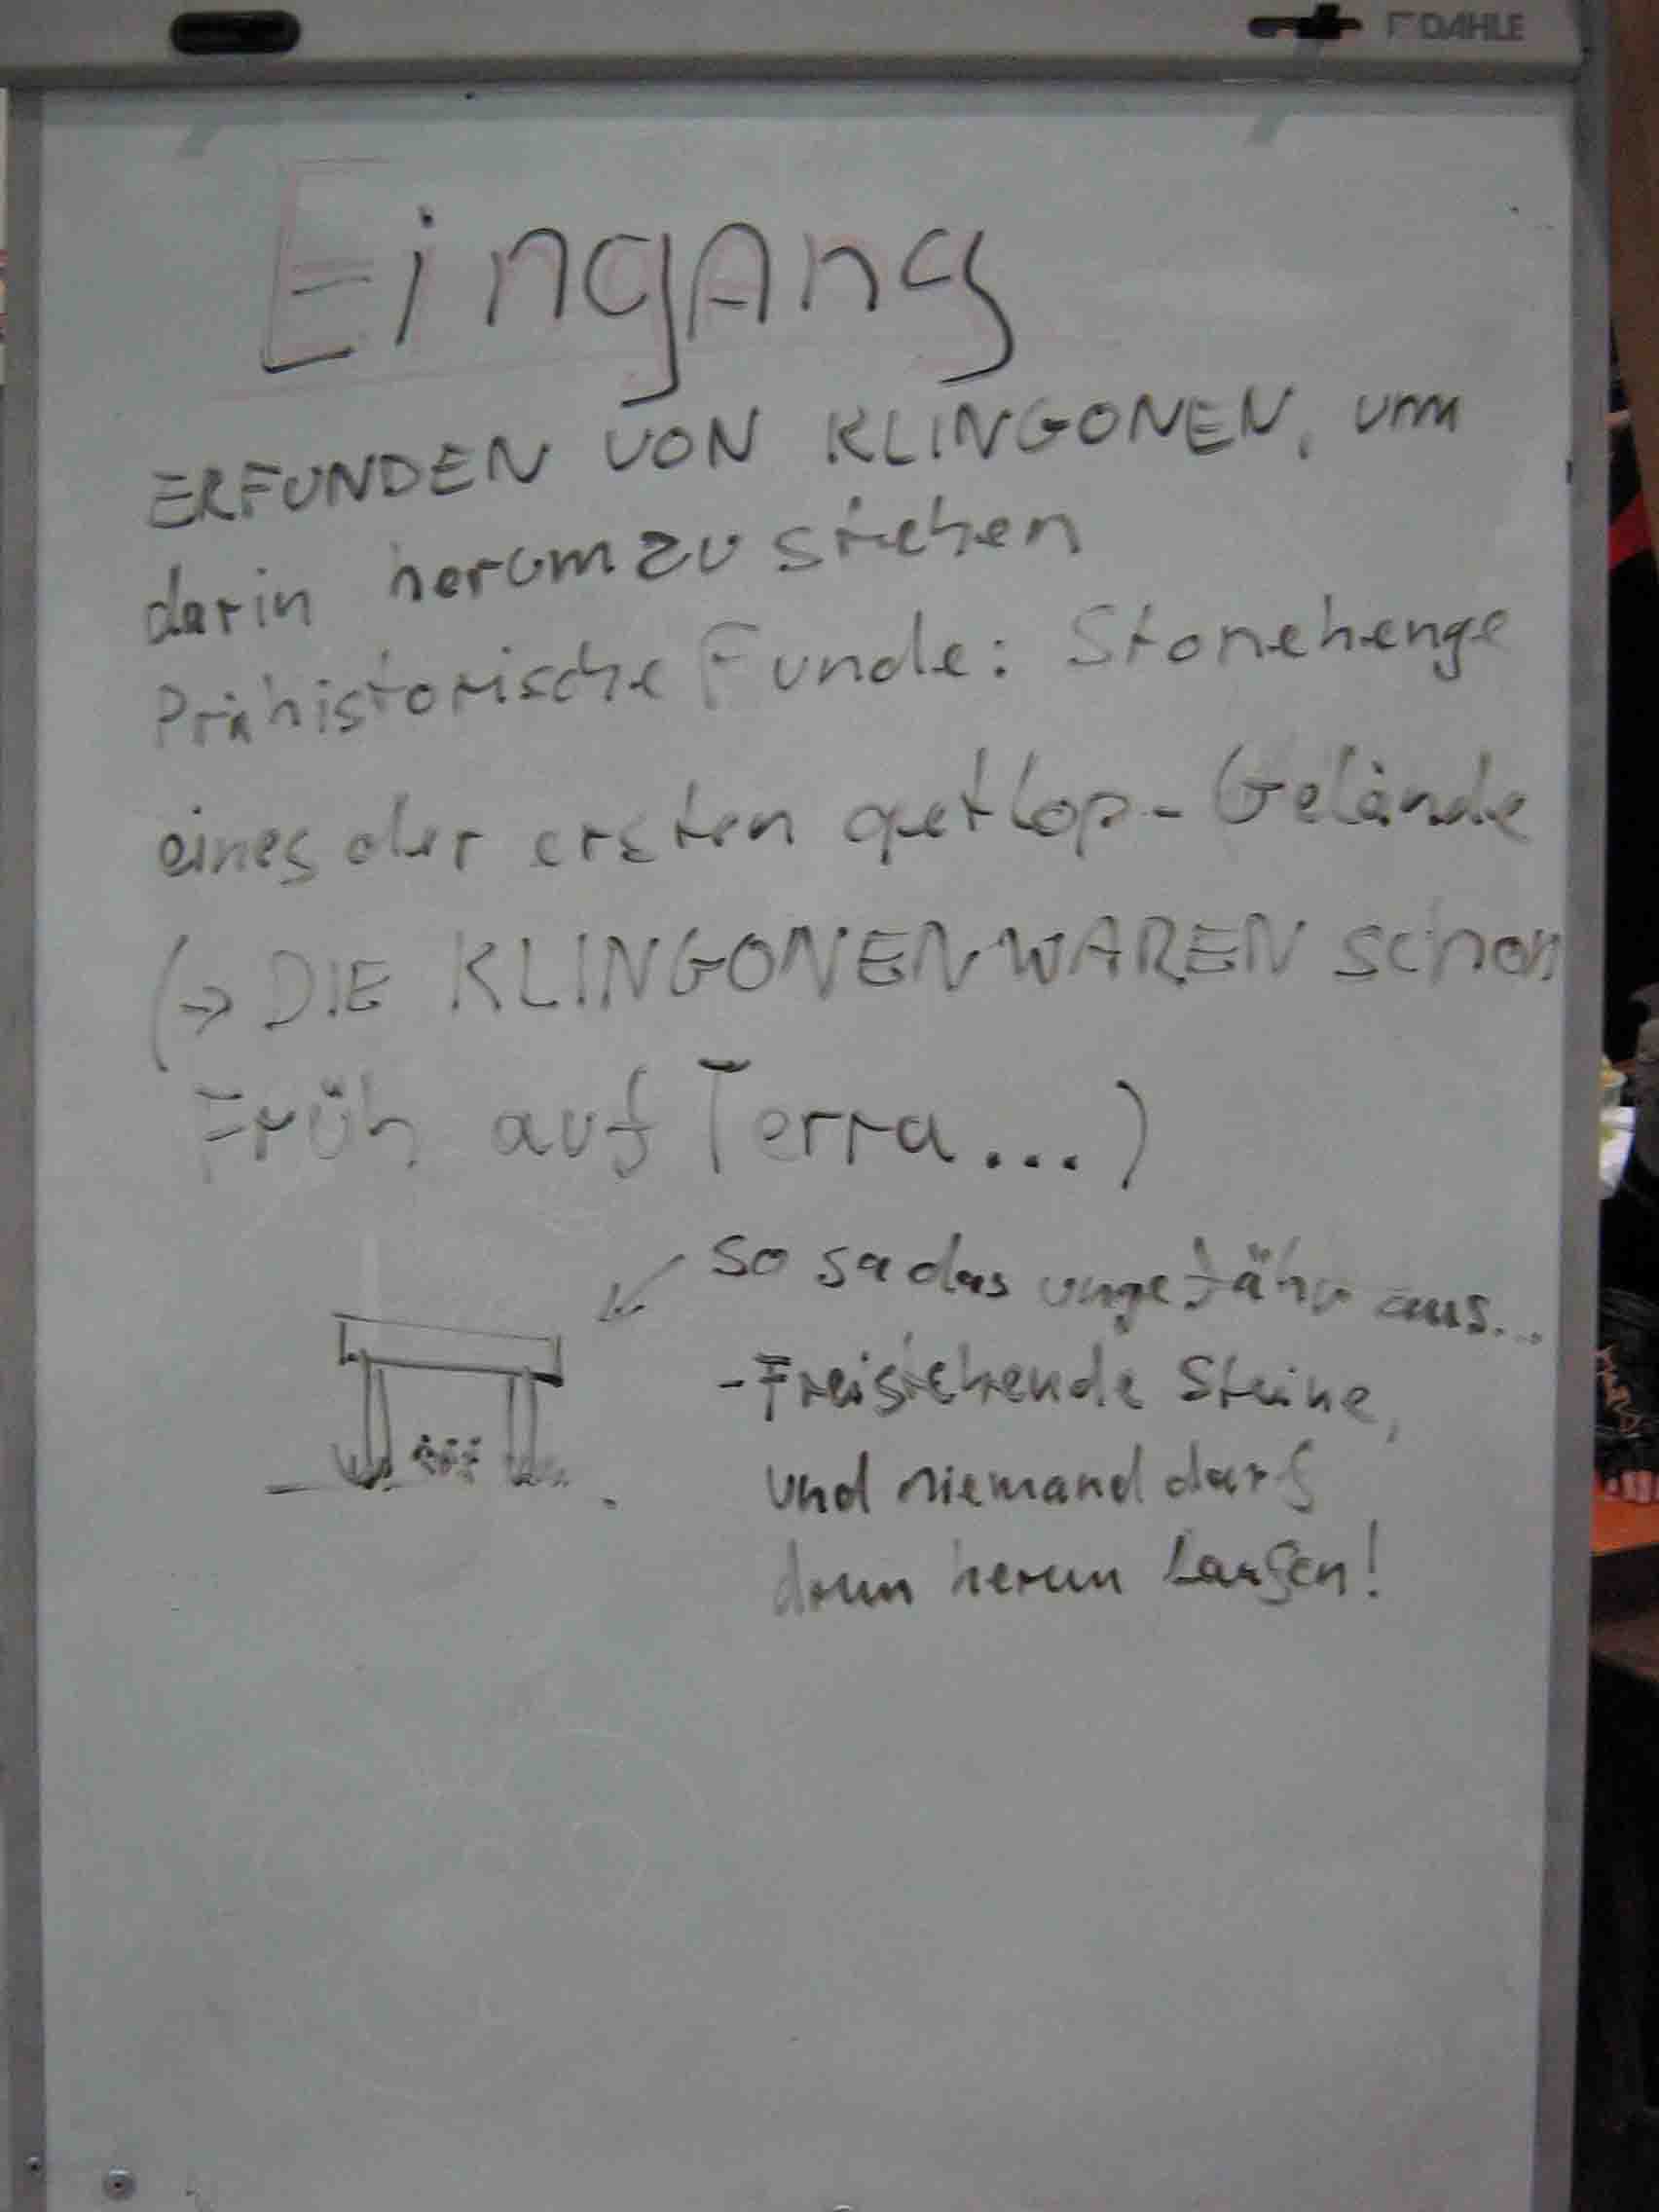 DAHLE
EingAng
ERFUNDEN VON KLINGONEN, um
darin herumzustehen
Prähistorische Funde: Stonehenge
eines der ersten qetlop-Gelände
(→ DIE KLINGONEN WAREN schon
Früh auf Terra...)
so sa das ungefähr aus...
- Freistehende Steine,
und niemand darf
drum herum Laufen!